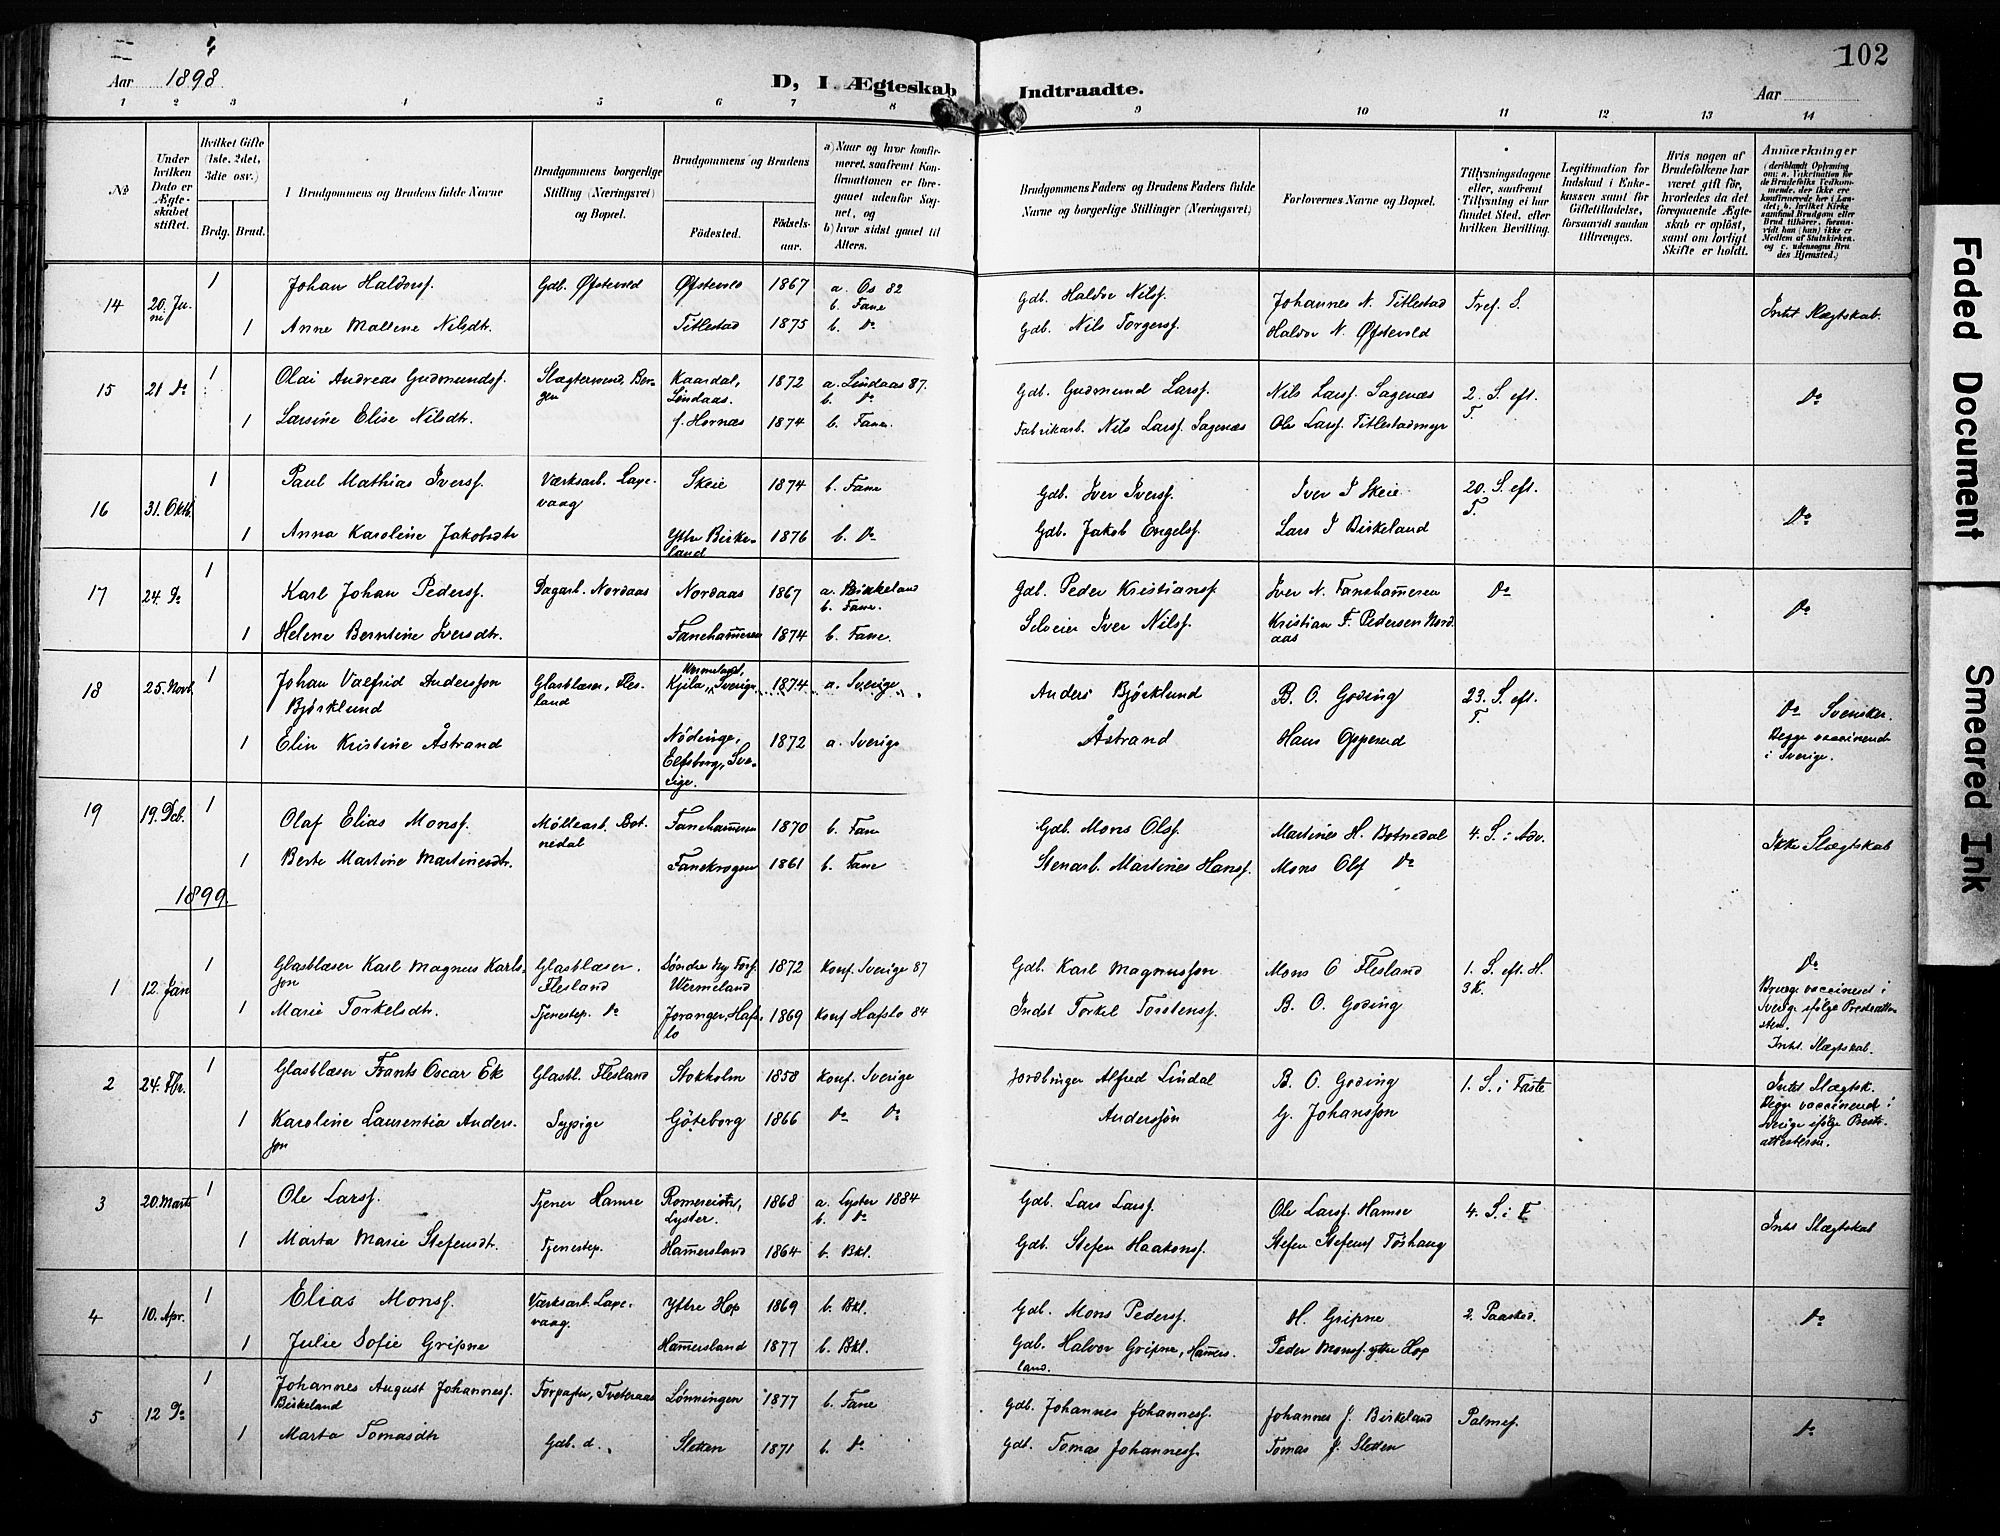 102
Aar 1898
D, I Ægteskab Indtraadte.
Aar
1 2 3 4 5 6 7 8 9 10 11 12 13 14
No
Under hvilken Dato er Ægteskabet stiftet.
Hvilket Gifte (1ste, 2det, 3die osv.)
Brdg. Brud.
Brudgommens og Brudens fulde Navne
Brudgommens borgerlige Stilling (Næringsvei) og Bopæl.
Brudgommens og Brudens
Födested.
Födselsaar.
a) Naar og hvor konfirmeret, saafremt Konfirmationen er foregaaet udenfor Sognet, og
b) hvor sidst gaaet til Alters.
Brudgommens Faders og Brudens Faders fulde Navne og borgerlige Stillinger (Næringsvei)
Forlovernes Navne og Bopæl.
Tillysningsdagene eller, saafremt Tillysning ei har fundet Sted, efter hvilken Bevilling.
Legitimation for Indskud i Enkekassen samt for Giftetilladelse, forsaavidt saadan tiltrænges.
Hvis nogen af Brudefolkene har været gift før, hvorledes da det foregaaende Ægteskab er opløst, samt om lovligt Skifte er holdt.
Anmærkninger
14 20. Juni 1 Johan Haldorsf. Gdb. Øfstevold Øfstevold 1867 a. Os 82 b. Fane Gdb. Haldor Nilsf. Johannes N. Titlestad Tref. S. Intet Slægtskab.
1 Anne Mallene Nilsdtr. Titlestad 1875 b. Do Gdb. Nils Torgersf. Haldor N. Øfstevold
15 21 Do 1 Olai Andreas Gudmundsf. Slagtersvend, Bergen Kaardal, Lindaas. 1872 a. Lindaas 87. b. Do Gdb. Gudmund Larsf. Nils Larsf. Sagenæs 2. S. eft. T. Do
1 Larsine Elise Nilsdtr. f. Hornæs 1874 b. Fane. Fabrikarb. Nils Larsf. Sagenæs Ole Larsf. Titlestadmyr
16 31. Oktb. 1 Paul Mathias Iversf. Værksarb. Laxevaag Skeie 1874 b. Fane Gdb. Iver Iversf. Iver I Skeie 20. S. eft. T. Do
1 Anna Karoline Jakobsdtr Yttre Birkeland 1876 b. Do Gdb. Jakob Engelsf. Lars I Birkeland
17 24. Do 1 Karl Johan Pedersf. Dagarb. Nordaas Nordaas 1867 a. Birkeland b. Fane. Gdb. Peder Kristiansf. Iver N. Fanehammeren Do Do
1 Helene Berntine Iversdtr. Fanehammeren 1874 b. Fane Selveier Iver Nilsf. Kristian F. Pedersen Nordaas
18 25. Novb. 1 Johan Valfrid Andersson Bjørklund Glasblæser, Flesland Kjila, Vermeland, Sverige 1874 a. Sverige Anders Bjørklund B. O. Goding 23. S. eft. T. Do Svensker.
1 Elin Kristine Åstrand Nödinge, Elfsborg, Sverige. 1872 a. Sverige Åstrand Hans Opperud Begge vaccinerede i Sverige.
19 19. Deb. 1 Olaf Elias Monsf. Møllearb. Botnedal Fanehammeren 1870 b. Fane Gdb. Mons Olsf. Martines H. Botnedal 4. S. i Adv. Ikke Slægtskab
1 Berte Martine Martinesdtr. Fanekrogen 1861 b. Fane Stenarb. Martines Hansf. Mons Olsf Do
1899.
1 12. Jan 1 Glasblæser Karl Magnus Karlsson Glasblæser. Flesland Søndre Ny Fors. Wermeland 1872 Konf. Sverige 87 Gdb. Karl Magnusson Mons O Flesland 1. S. eft. H. 3 K. Do
1 Marie Torkelsdtr. Tjenestep. Do Joranger, Hafslo 1869 Konf Hafslo 84 Indst Torkel Torstensf. B. O. Goding Brudg. vaccineret i Sverige ifølge Presteattesten.
Intet Slægtskab.
2 24. Fbr. 1 Glasblæser Frants Oscar Ek Glasbl. Flesland Stokholm 1858 Konf. Sverige Jordbruger Alfred Lindal B. O. Goding 1. S. i Faste Intet Slægtsk.
1 Karoline Laurentia Andersson Sypige Göteborg 1866 Do Do Anderssøn G. Johansson Begge vaccinerede i Sverige ifølge Presteattesterne.
3 20. Marts 1 Ole Larsf. Tjener Hamre Romereim, Lyster. 1868 a. Lyster 1884 b. Do Gdb. Lars Larsf. Ole Larsf. Hamre 4. S. i F Intet Slægtskab
1 Marta Marie Stefensdtr. Tjenestep. Hamersland 1864 b. Bkl. Gdb. Stefen Haakonsf. Stefen Stefensf Töshaug
4 10. Apr. 1 Elias Monsf. Værksarb. Laxevaag. Yttre Hop 1869 b. Bkl. Gdb. Mons Pedersf. H. Gripne 2. Paasked. Do
1 Julie Sofie Gripne Hamersland 1877 b. Bkl. Gdb. Halvor Gripne, Hamersland. Peder Monsf. ytre Hop
5 12 Do 1 Johannes August Johannesf. Birkeland Forpagter, Tveteraas Lønningen 1877 b. Fane Gdb. Johannes Johannesf. Johannes J. Birkeland Palmes. Do
1 Marta Tomasdtr Gdb. d. Sletten 1871 b. Do Gdb. Tomas Johannesf. Tomas J. Sletten
Faded Document
Smeared Ink